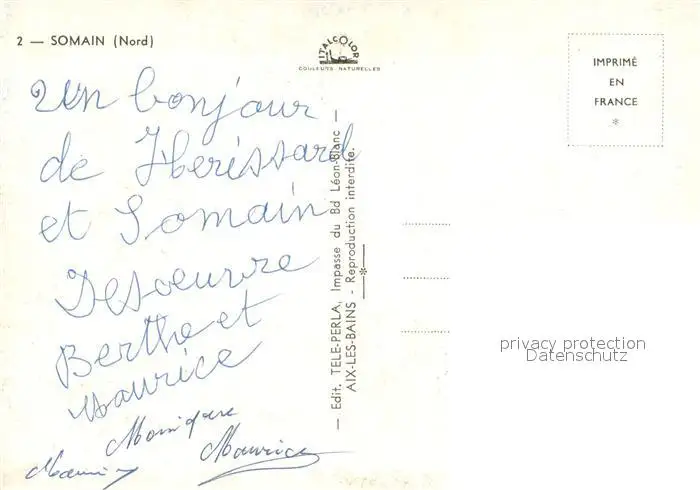 2 — SOMAIN (Nord)
ITALCOLOR
COULEURS NATURELLES
IMPRIMÉ
EN
FRANCE
*
Un bonjour
de Hérissard
et Somain
Desoeuvre
Berthe et
Maurice
Monique
Maurice
— Edit. TELE-PERLA, Impasse du Bd Léon-Blanc —
AIX-LES-BAINS - Reproduction interdite.
privacy protection
Datenschutz